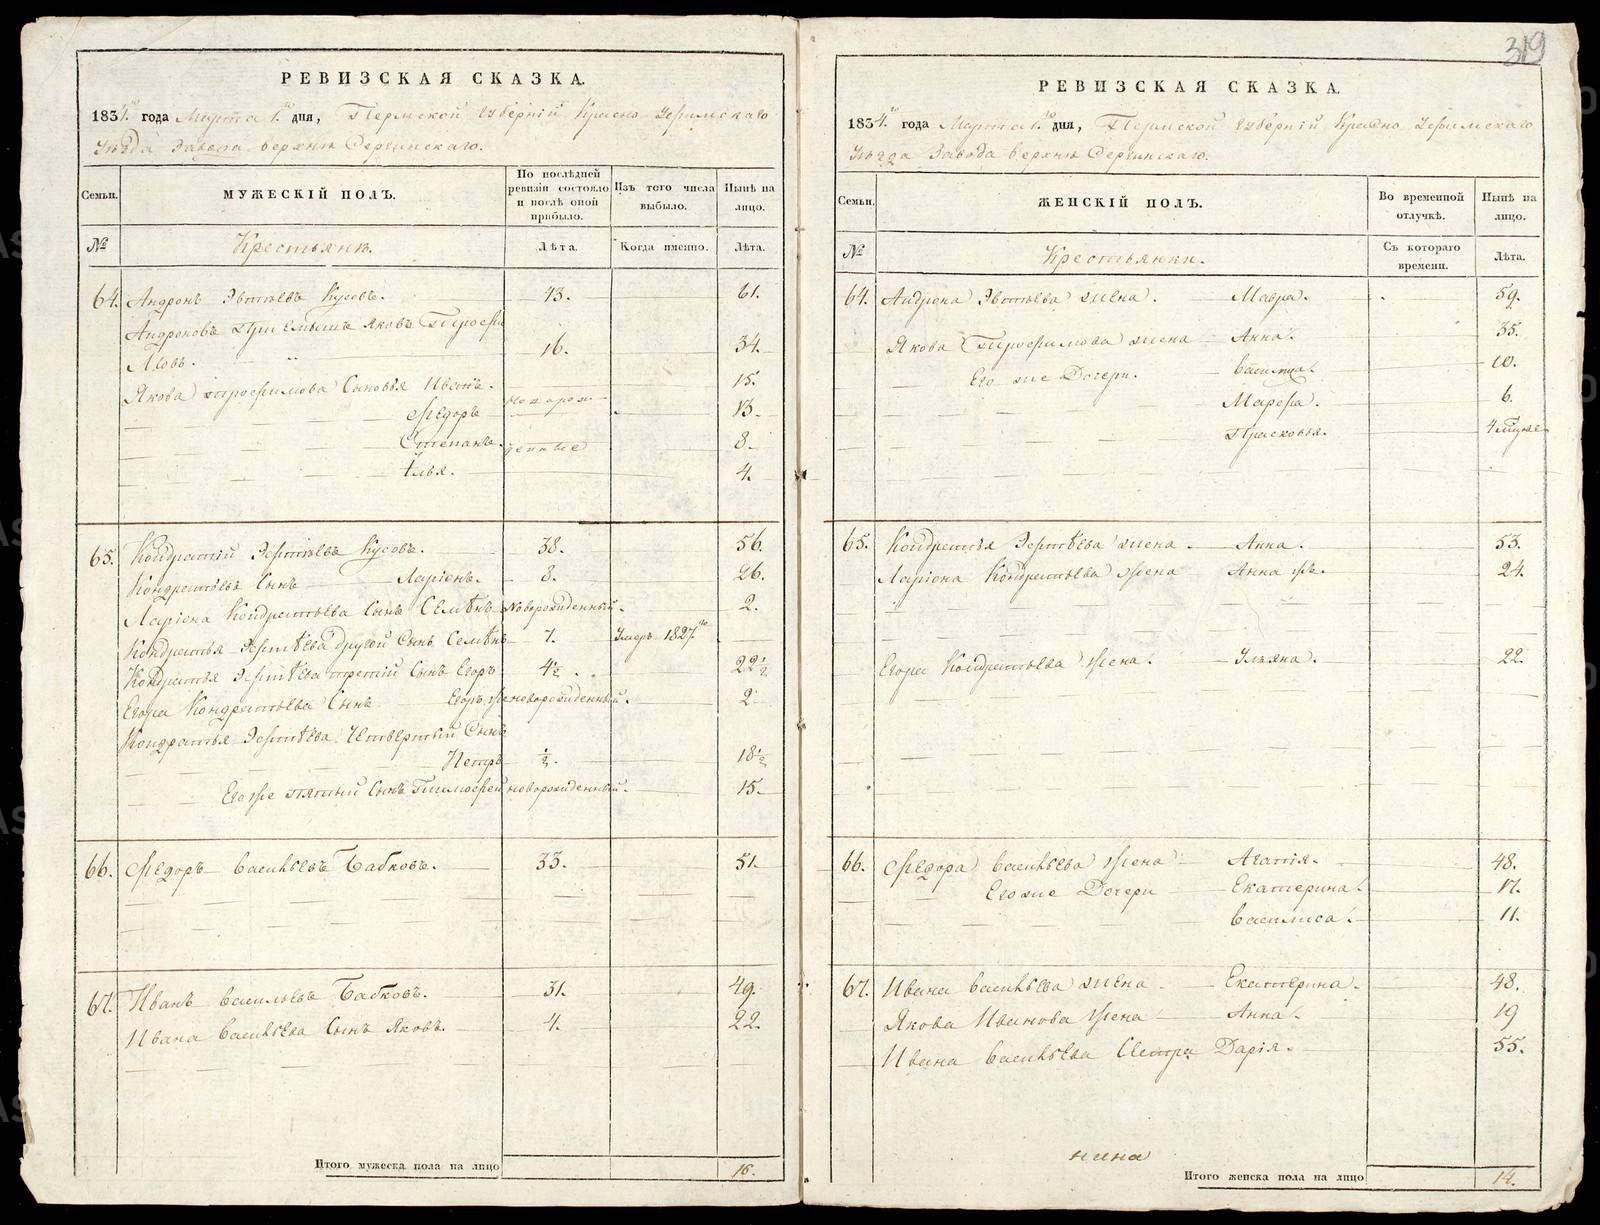 319
РЕВИЗСКАЯ СКАЗКА.
1834го года Марта 1го дня, Пермской Губерніи Красно Уфимскаго
Уѣзда Завода Верхни Сергинскаго.
Семьи. МУЖЕСКІЙ ПОЛЪ. По послѣдней ревизіи состояло и послѣ оной прибыло. Изъ того числа выбыло. Нынѣ на лицо.
№ Крестьянѣ. Лѣта. Когда именно. Лѣта.
64. Андронъ Эвтѣевъ Кусовъ. 43. 61.
Андроновъ Приемышъ Яковъ Трофи
мовъ. 16. 34.
Якова Трофимова Сыновья Иванъ. 15.
Ѳедоръ новорож 13.
Степанъ. денные 8.
Илья. 4.
65. Кондратій Эвтѣевъ Кусовъ. 38. 56.
Кондратьевъ Сынъ Ларіонъ. 8. 26.
Ларіона Кондратьева Сынъ Семѣнъ Новорожденный. 2.
Кондратья Эвтѣева другой Сынъ Семѣнъ 7. Умеръ 1827го
Кондратья Эвтѣева третій Сынъ Егоръ 4½. 22½
Егора Кондратьева Сынъ Егоръ же новорожденный. 2
Кондратья Эвтѣева Четвертый Сынъ
Петръ ½. 18½
Егоже пятый Сынъ Тимофей новорожденный. 15.
66. Ѳедоръ Васильевъ Бабковъ. 33. 51.
67. Иванъ Васильевъ Бабковъ. 31. 49.
Ивана Васильева Сынъ Яковъ. 4. 22.
Итого мужеска пола на лицо 16.
РЕВИЗСКАЯ СКАЗКА.
1834го года Марта 1го дня, Пермской Губерніи Красно Уфимскаго
Уѣзда Завода Верхни Сергинскаго.
Семьи. ЖЕНСКІЙ ПОЛЪ. Во временной отлучкѣ. Нынѣ на лицо.
№ Крестьянки. Съ котораго времени. Лѣта.
64. Андрона Эвтѣева жена. Мавра. 59.
Якова Трофимова жена Анна. 35.
Его же Дочери. Василиса. 10.
Марфа. 6.
Прасковья. 4
65. Кондратья Эвтѣева жена Анна. 53.
Ларіона Кондратьева жена Анна же. 24.
Егора Кондратьева жена. Ульяна. 22.
66. Ѳедора Васильева жена Агапія. 48.
Его же Дочери Екатерина. 17.
Василиса. 11.
67. Ивана Васильева жена Екатерина. 48.
Якова Иванова жена Анна. 19
Ивана Васильева Сестра Дарія. 55.
Итого женска пола на лицо 14.